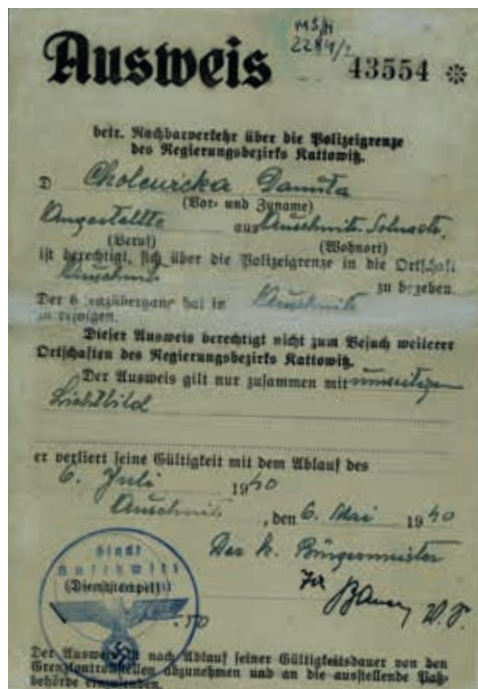 MS/H
2284/2
Ausweis 43554
betr. Nachbarverkehr über die Polizeigrenze
des Regierungsbezirks Kattowitz.
D Cholewicka Danuta
(Vor- und Zuname)
Angestellte aus Auschwitz
(Beruf) (Wohnort)
ist berechtigt, sich über die Polizeigrenze in die Ortschaft
Auschwitz zu begeben.
Der Grenzübergang hat in Auschwitz
zu erfolgen.
Dieser Ausweis berechtigt nicht zum Besuch weiterer
Ortschaften des Regierungsbezirks Kattowitz.
Der Ausweis gilt nur zusammen mit umseitigen
Lichtbild
er verliert seine Gültigkeit mit dem Ablauf des
6. Juli 1940
Auschwitz, den 6. Mai 1940
Der k. Bürgermeister
Stadt
Auschwitz
(Dienststempel)
-.50
Der Ausweis ist nach Ablauf seiner Gültigkeitsdauer von den
Grenzkontrollstellen abzunehmen und an die ausstellende Paß-
behörde einzusenden.